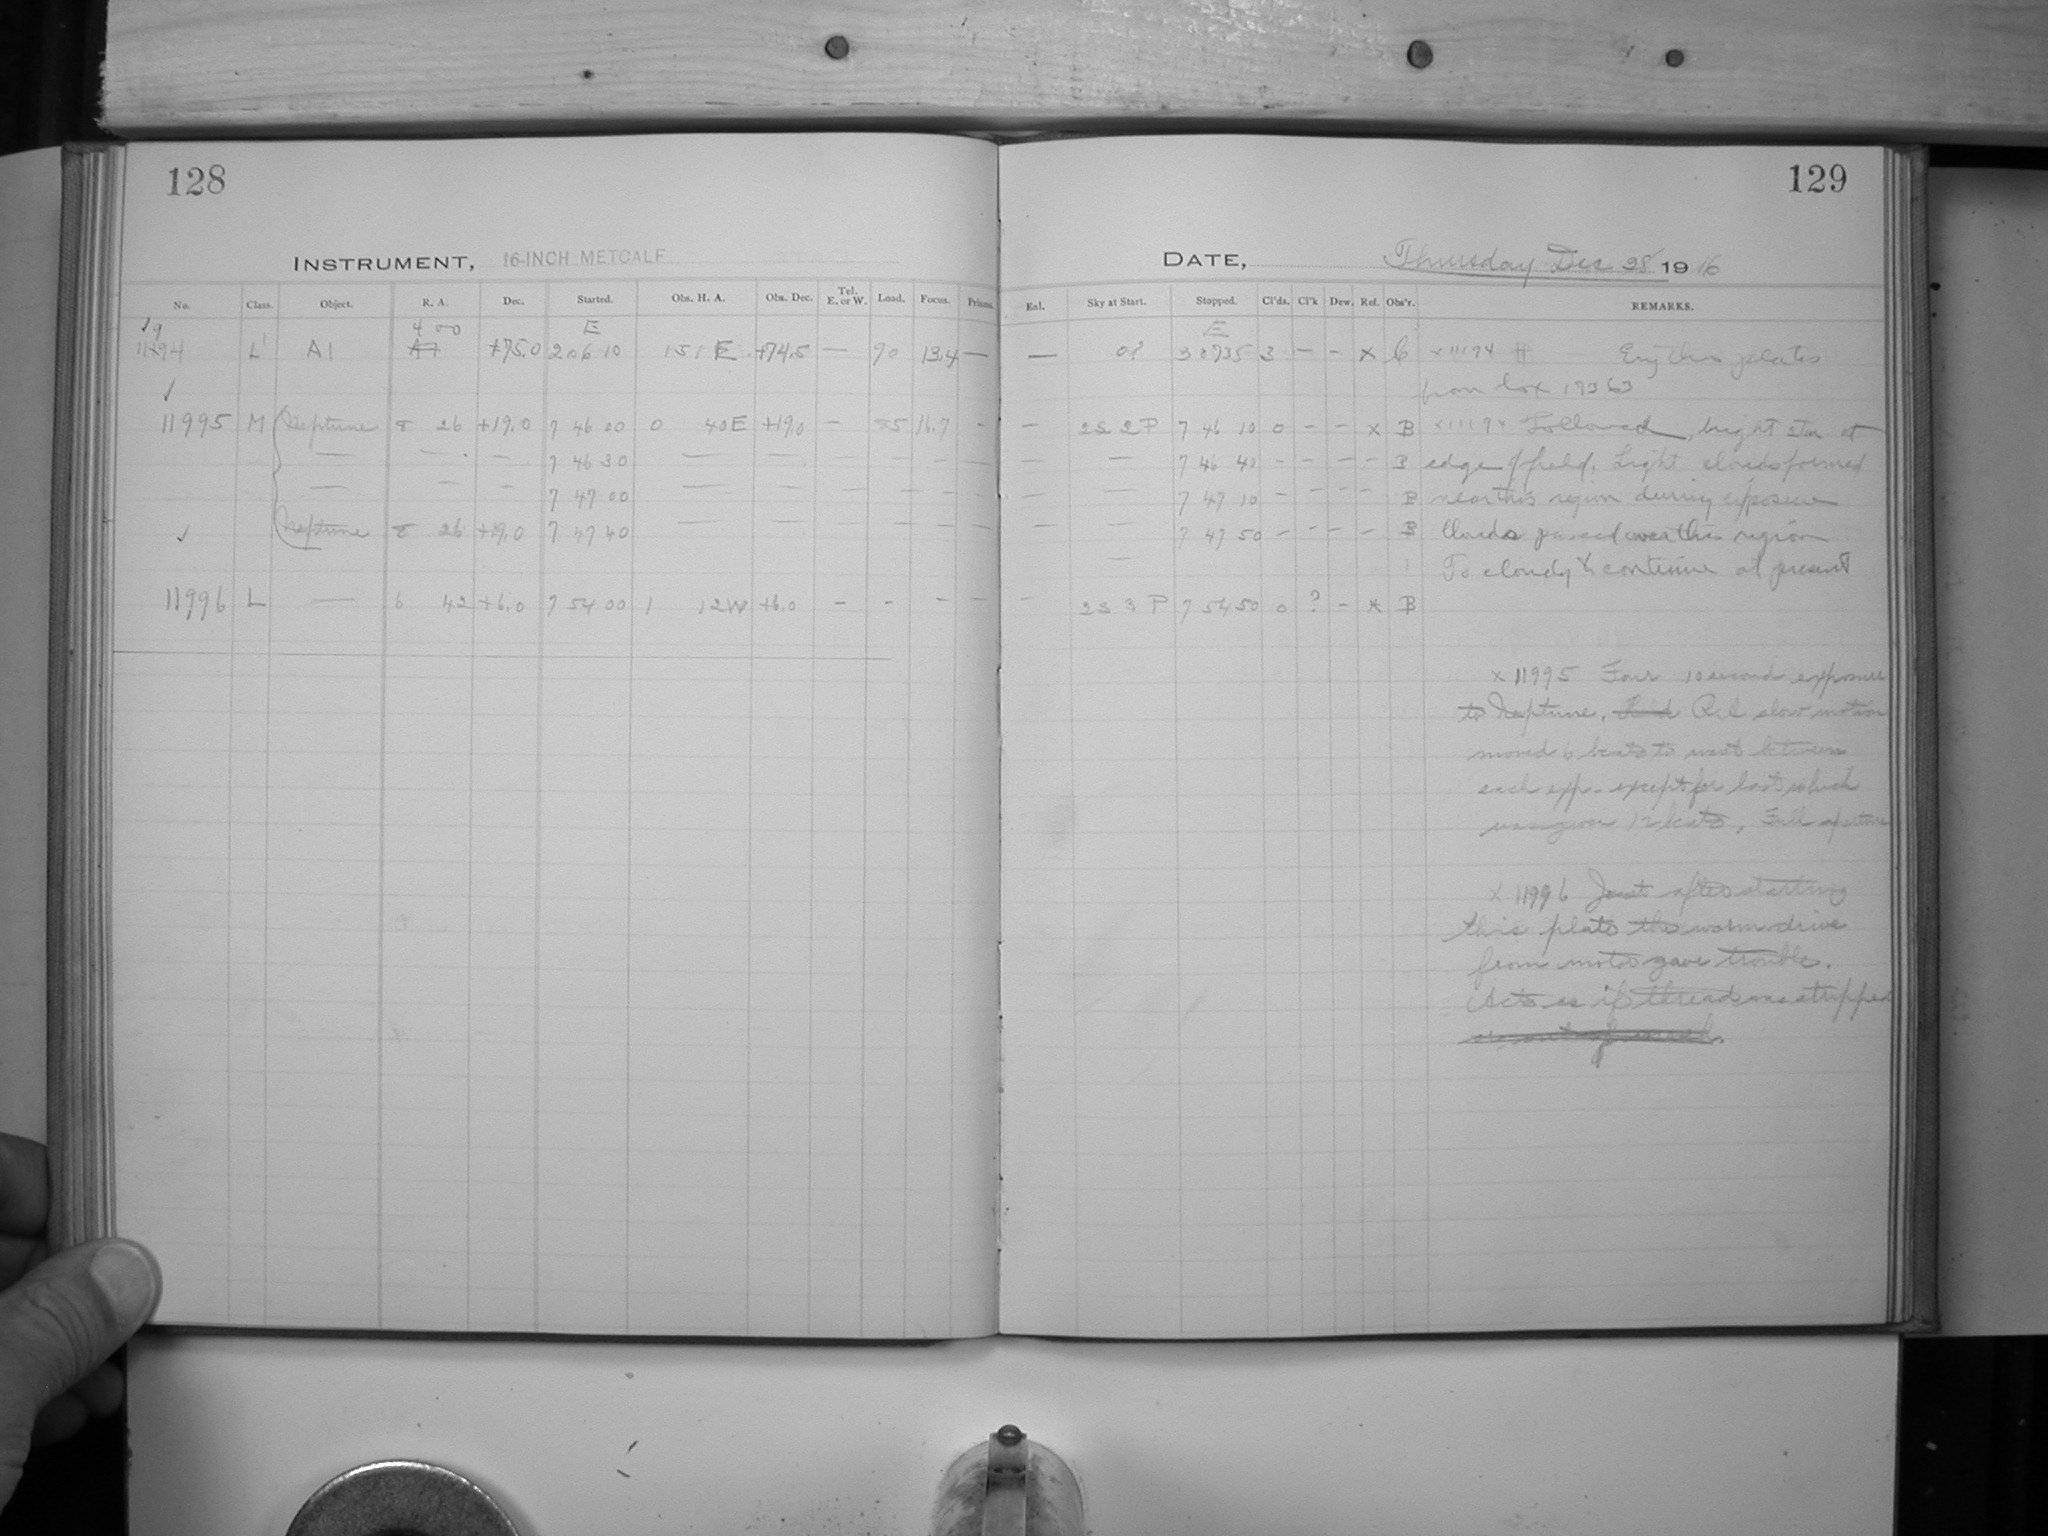 128
129
INSTRUMENT, 16-INCH METCALF
DATE, Thursday Dec 28 1916
No. Class. Object. R. A. Dec. Started. Obs. H. A. Obs. Dec. Tel. E. or W. Load. Focus. Prisms.
Enl. Sky at Start. Stopped. Cl'ds. Cl'k Dew. Ref. Obs'r. REMARKS.
✓ 9 4 00 E E
11194 L' A1 A7 +75.0 2 06 10 1 51 E +74.5 — 90 13.4 — — 0? 3 07 35 3 — — x C x 11194 # plates
✓ from box 17363
11995 M Neptune 8 26 +19.0 7 46 00 0 40E +19.0 — 85 16.7 — — 2S 2P 7 46 10 0 — — x B x 11194 Followed, bright star at
— — — 7 46 30 — — — — — — — — 7 46 40 — — — — B edge of field. Light clouds formed
— — — 7 47 00 — — — — — — — — 7 47 10 — — — — B near this region during exposure
✓ Neptune 8 26 +19.0 7 47 40 — — — — — — — — 7 47 50 — — — — B Clouds passed over this region
— To cloudy to continue at present
11996 L — 6 42 +6.0 7 54 00 1 12W +6.0 — — — — — 2S 3 P 7 54 50 0 ? — x B
x 11995 Four 10 second exposure
to Neptune. R.A. slow motion
moved 6 beats to west between
each exp. except for last which
was given 12 beats, Full aperture
x 11996 Just after starting
this plate the worm drive
from motor gave trouble.
Acts as if thread was stripped
or out of mesh.